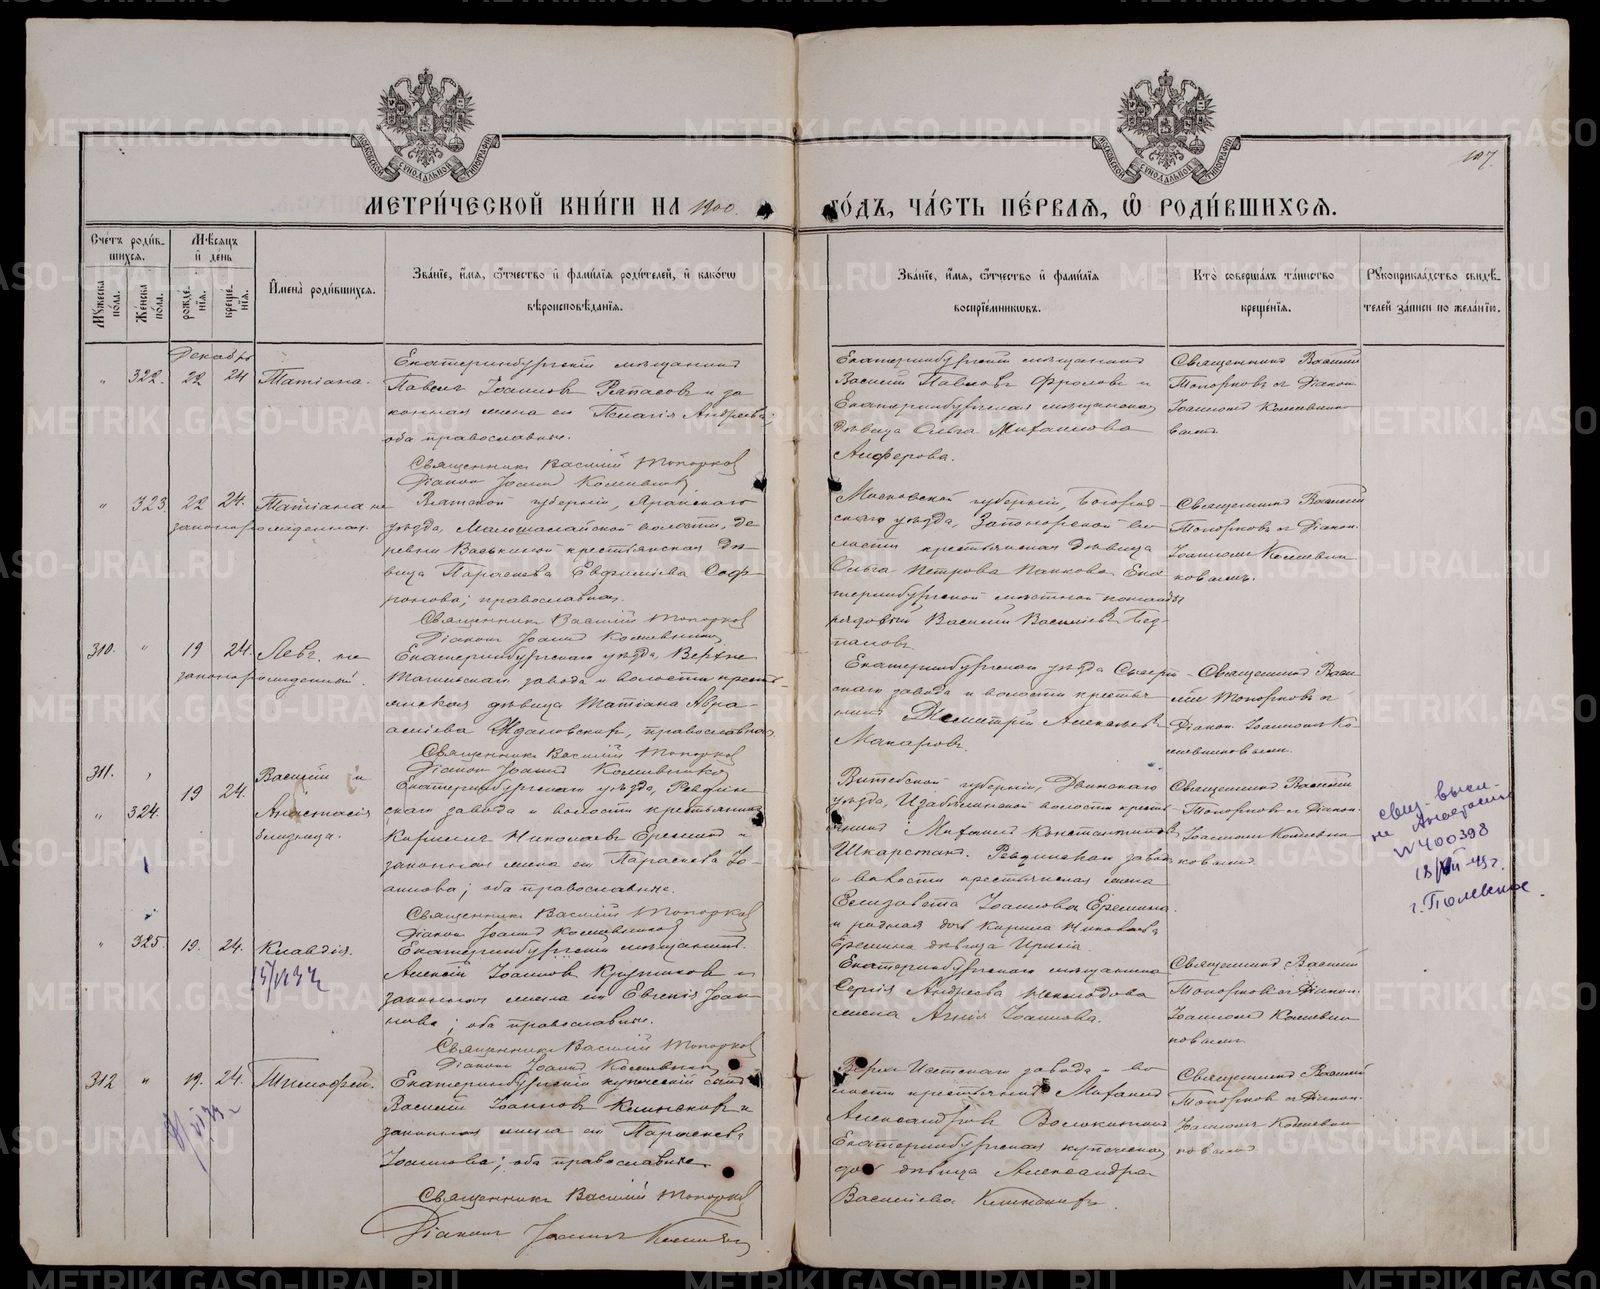 107.
МЕТРИ́ЧЕСКОЙ КНИ́ГИ НА 1900.
ГО́ДЪ, ЧА́СТЬ ПЕ́РВАѦ, Ѽ РОДИ́ВШИХСѦ.
Сче́тъ роди́в-
шихся.
Мꙋжеска по́ла.
Же́нска по́ла.
Мѣ́сѧцъ и҆ де́нь
рожде́-нїѧ.
креще́-нїѧ.
И҆мена̀ роди́вшихсѧ.
Зва́нїе, и҆́мѧ, ѻ҆́тчество и҆ фами́лїѧ роди́телей, и҆ како́гѡ
вѣроисповѣ́данїѧ.
Зва́нїе, и҆́мѧ, ѻ҆́тчество и҆ фами́лїѧ
воспрїе́мникѡвъ.
Кто̀ соверша́лъ та́инство
креще́нїѧ.
Рꙋкоприкла́дство свидѣ́-
телей за́писи по жела́нїю.
Декабрь
" 322. 22 24 Татіана.
Екатеринбургскій мѣщанинъ
Павелъ Іоанновъ и за
конная жена его Пелагія Андреева;
оба православные.
Священникъ Василій Топорковъ
Діаконъ Іоаннъ Кожевниковъ
Екатеринбургскій мѣщанинъ
Василій Павловъ Фроловъ и
Екатеринбургская мѣщанская
дѣвица Ольга Михаилова
Анферова.
Священникъ Василій
Топорковъ съ Діакон.
Іоанномъ Кожевнико
вымъ.
" 323. 22 24. Татіана не
законнорожденная.
Вятской губерніи, Яранскаго
уѣзда, волости, де
ревни Васькиной крестьянская дѣ-
вица Параскева Евфиміева Соф-
ронова; православная.
Священникъ Василій Топорковъ
Діаконъ Іоаннъ Кожевниковъ
Московской губерніи, Богород-
скаго уѣзда, Запонорской во
лости крестьянская дѣвица
Ольга Петрова Панкова Ека
теринбургской мѣстной команды
рядовый Василій Василіевъ
Священникъ Василій
Топорковъ съ Діакон.
Іоанномъ Кожевни
ковымъ.
310. " 19 24. Левъ. не
законнорожденный.
Екатеринбургскаго уѣзда, Верхне
Тагильскаго завода и волости кресть-
янская дѣвица Татіана Авра-
аміева Ждановскихъ, православная.
Священникъ Василій Топорковъ
Діаконъ Іоаннъ Кожевниковъ
Екатеринбургскаго уѣзда Сысерт-
скаго завода и волости крестья
нинъ Димитрій Алексѣевъ
Макаровъ.
Священникъ Васи
лій Топорковъ съ
Діакон. Іоанномъ Ко
жевниковымъ.
311. " 19 24. Василій и
" 324. Анастасія
близнецы.
Екатеринбургскаго уѣзда, Ревдин
скаго завода и волости крестьянинъ
Кириллъ Николаевъ Ереминъ и
законная жена его Параскева Іо-
аннова; оба православные.
Священникъ Василій Топорковъ
Діаконъ Іоаннъ Кожевниковъ
Витебской губерніи, Двинскаго
уѣзда, волости кресть
янинъ Михаилъ Константиновъ
Ревдинскаго завода
и волости крестьянская жена
Елизавета Іоаннова Еремина
и родная дочь Кирила Николаева
Еремина дѣвица Ирина.
Священникъ Василій
Топорковъ съ Діакон.
Іоанномъ Кожевни
ковымъ.
свид. высл.
на Анастасию
№ 400398
18/VII-49г.
г. Полевское.
" 325. 19. 24. Клавдія.
Екатеринбургскій мѣщанинъ.
Алексій Іоанновъ Крупинковъ и
законная жена его Евгенія Іоан
нова; оба православные.
Священникъ Василій Топорковъ
Діаконъ Іоаннъ Кожевниковъ
Екатеринбургскаго мѣщанина
Сергія Андреева
жена Анна Іоаннова.
Священникъ Василій
Топорковъ съ Діакон.
Іоанномъ Кожевни
ковымъ.
312 " 19. 24. Тимофей.
Екатеринбургскій купеческій сынъ
Василій Іоанновъ и
законная жена его Параскева
Іоаннова; оба православные.
Священникъ Василій Топорковъ
Діаконъ Іоаннъ Кожевниковъ
Верхъ Исетскаго завода и во
лости крестьянинъ Михаилъ
Александровъ Волокитинъ
Екатеринбургская купеческая
дочь дѣвица Александра
Василіева
Священникъ Василій
Топорковъ съ Діакон.
Іоанномъ Кожевни
ковымъ
METRIKI.GASO-URAL.RU